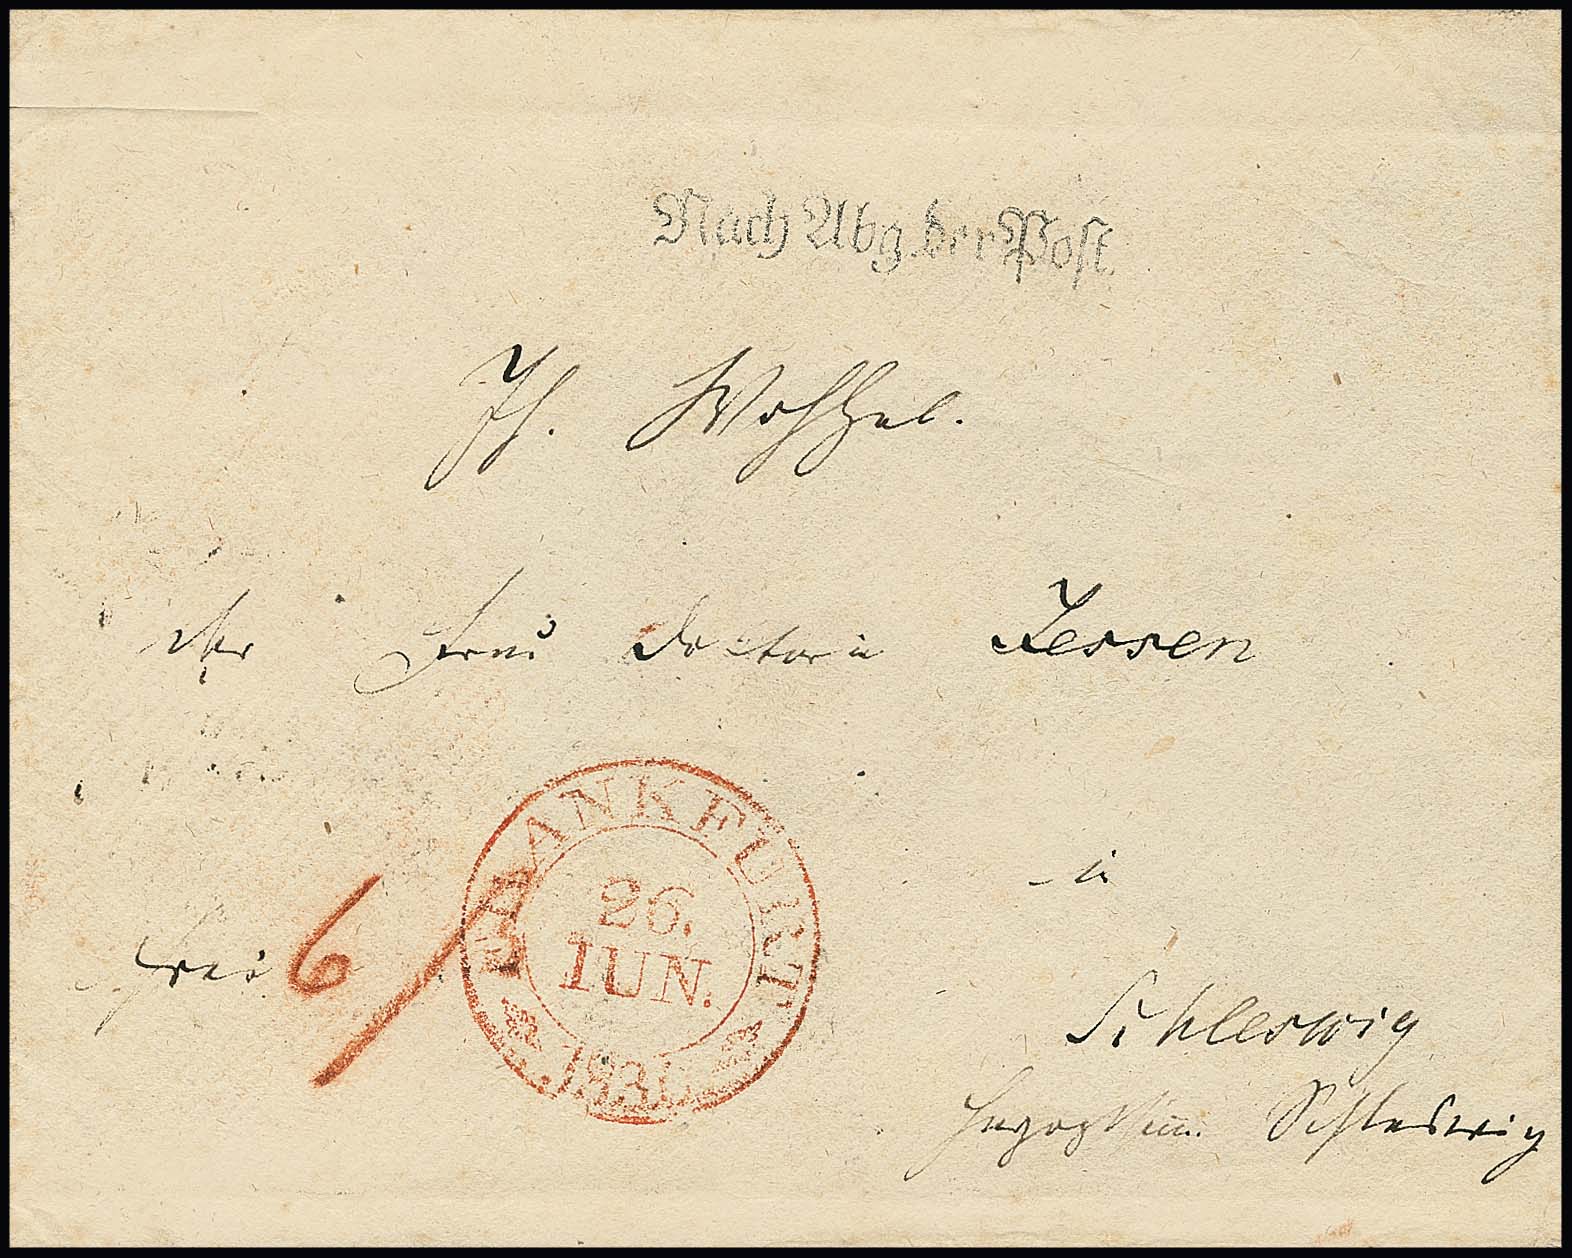 Nach Abg. der Post.
Wohlgeb.
der Frau Doctorin Jessen
in
frei 6
FRANKFURT
26.
IUN.
Schleswig
Herzogthum Schleswig